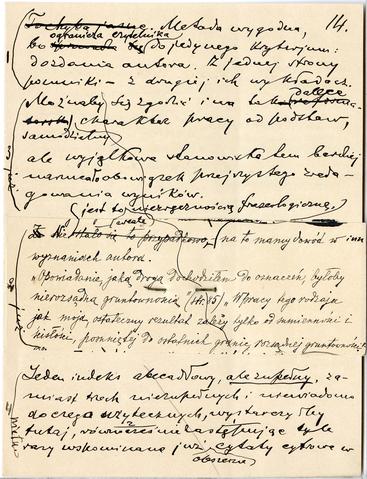 14.
Metoda wygodna,
ogranicza czytelnika
bo do jedynego kryterjum:
do zdania autora. Z jednej strony
pomniki – z drugiej ich wykładacz.
Możnaby się zgodzić i na tak dalece
charakter pracy od podstaw,
samodzielny
ale wyjątkowe stanowisko tem bardziej
obowiązek przejrzystego zreda-
gowania wyników.
(jest to, niezręcznością frazeologiczną
wcale
Nie stało się to przypadkowo, – na to mamy dowód w inn
wyznaniach autora.
„Opowiadanie, jaką drogą dochodziłem do oznaczeń, byłoby
nierozsądną gruntownością" [str. 15], „W pracy tego rodzaju
jak moja, ostateczny rezultat zależy tylko od sumienności i
ścisłości, posuniętej do ostatnich granic rozsądnej gruntowności"
Jeden indeks abecadłowy, ale zupełny, za-
miast trzech niezupełnych i niewiadomo
do czego użytecznych, wystarczyłby
tutaj, równocześnie zastępując tyle
razy wspomniane już cytaty cyfrowe w
obszerne